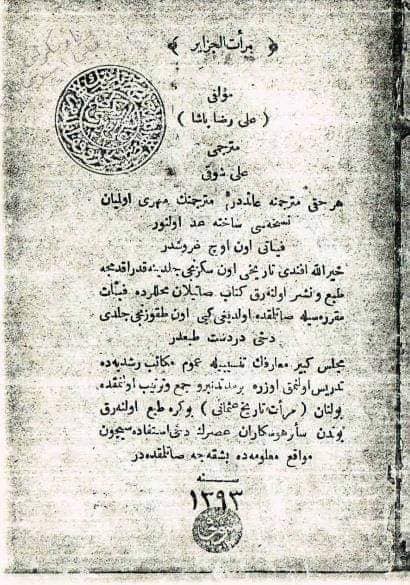 ﴿ مرأت الجزاير ﴾
مؤلفی
( علی رضا پاشا )
مترجمی
علی شوقی
هر حقی مترجمنه عائددر، مترجمنك مهری اولمیان
نسخه‌سی ساخته عد اولنور
فیئاتی اون اوچ غروشدر
خیرالله افندی تاریخی اون سكزنجی جلدینه قدر اقدمجه
طبع و نشر اولنه‌رق كتاب صاتیلان محللرده فیئات
مقرره‌سیله صاتلقده اولدیغی كبی اون طقوزنجی جلدی
دخی دردست طبعدر
مجلس كبیر معارفك تنسیبیله عموم مكاتب رشدیه‌ده
تدریس اولنمق اوزره جمع و ترتیب اولنمقده
بولنان ( مرأت تاریخ عثمانی ) بوكره طبع اولنه‌رق
بوندن سائر هوسكاران عصرك دخی استفاده‌سیچون
مواقع معلومه‌ده بشقه‌جه صاتلقده‌در
سنه
١٢٩٣